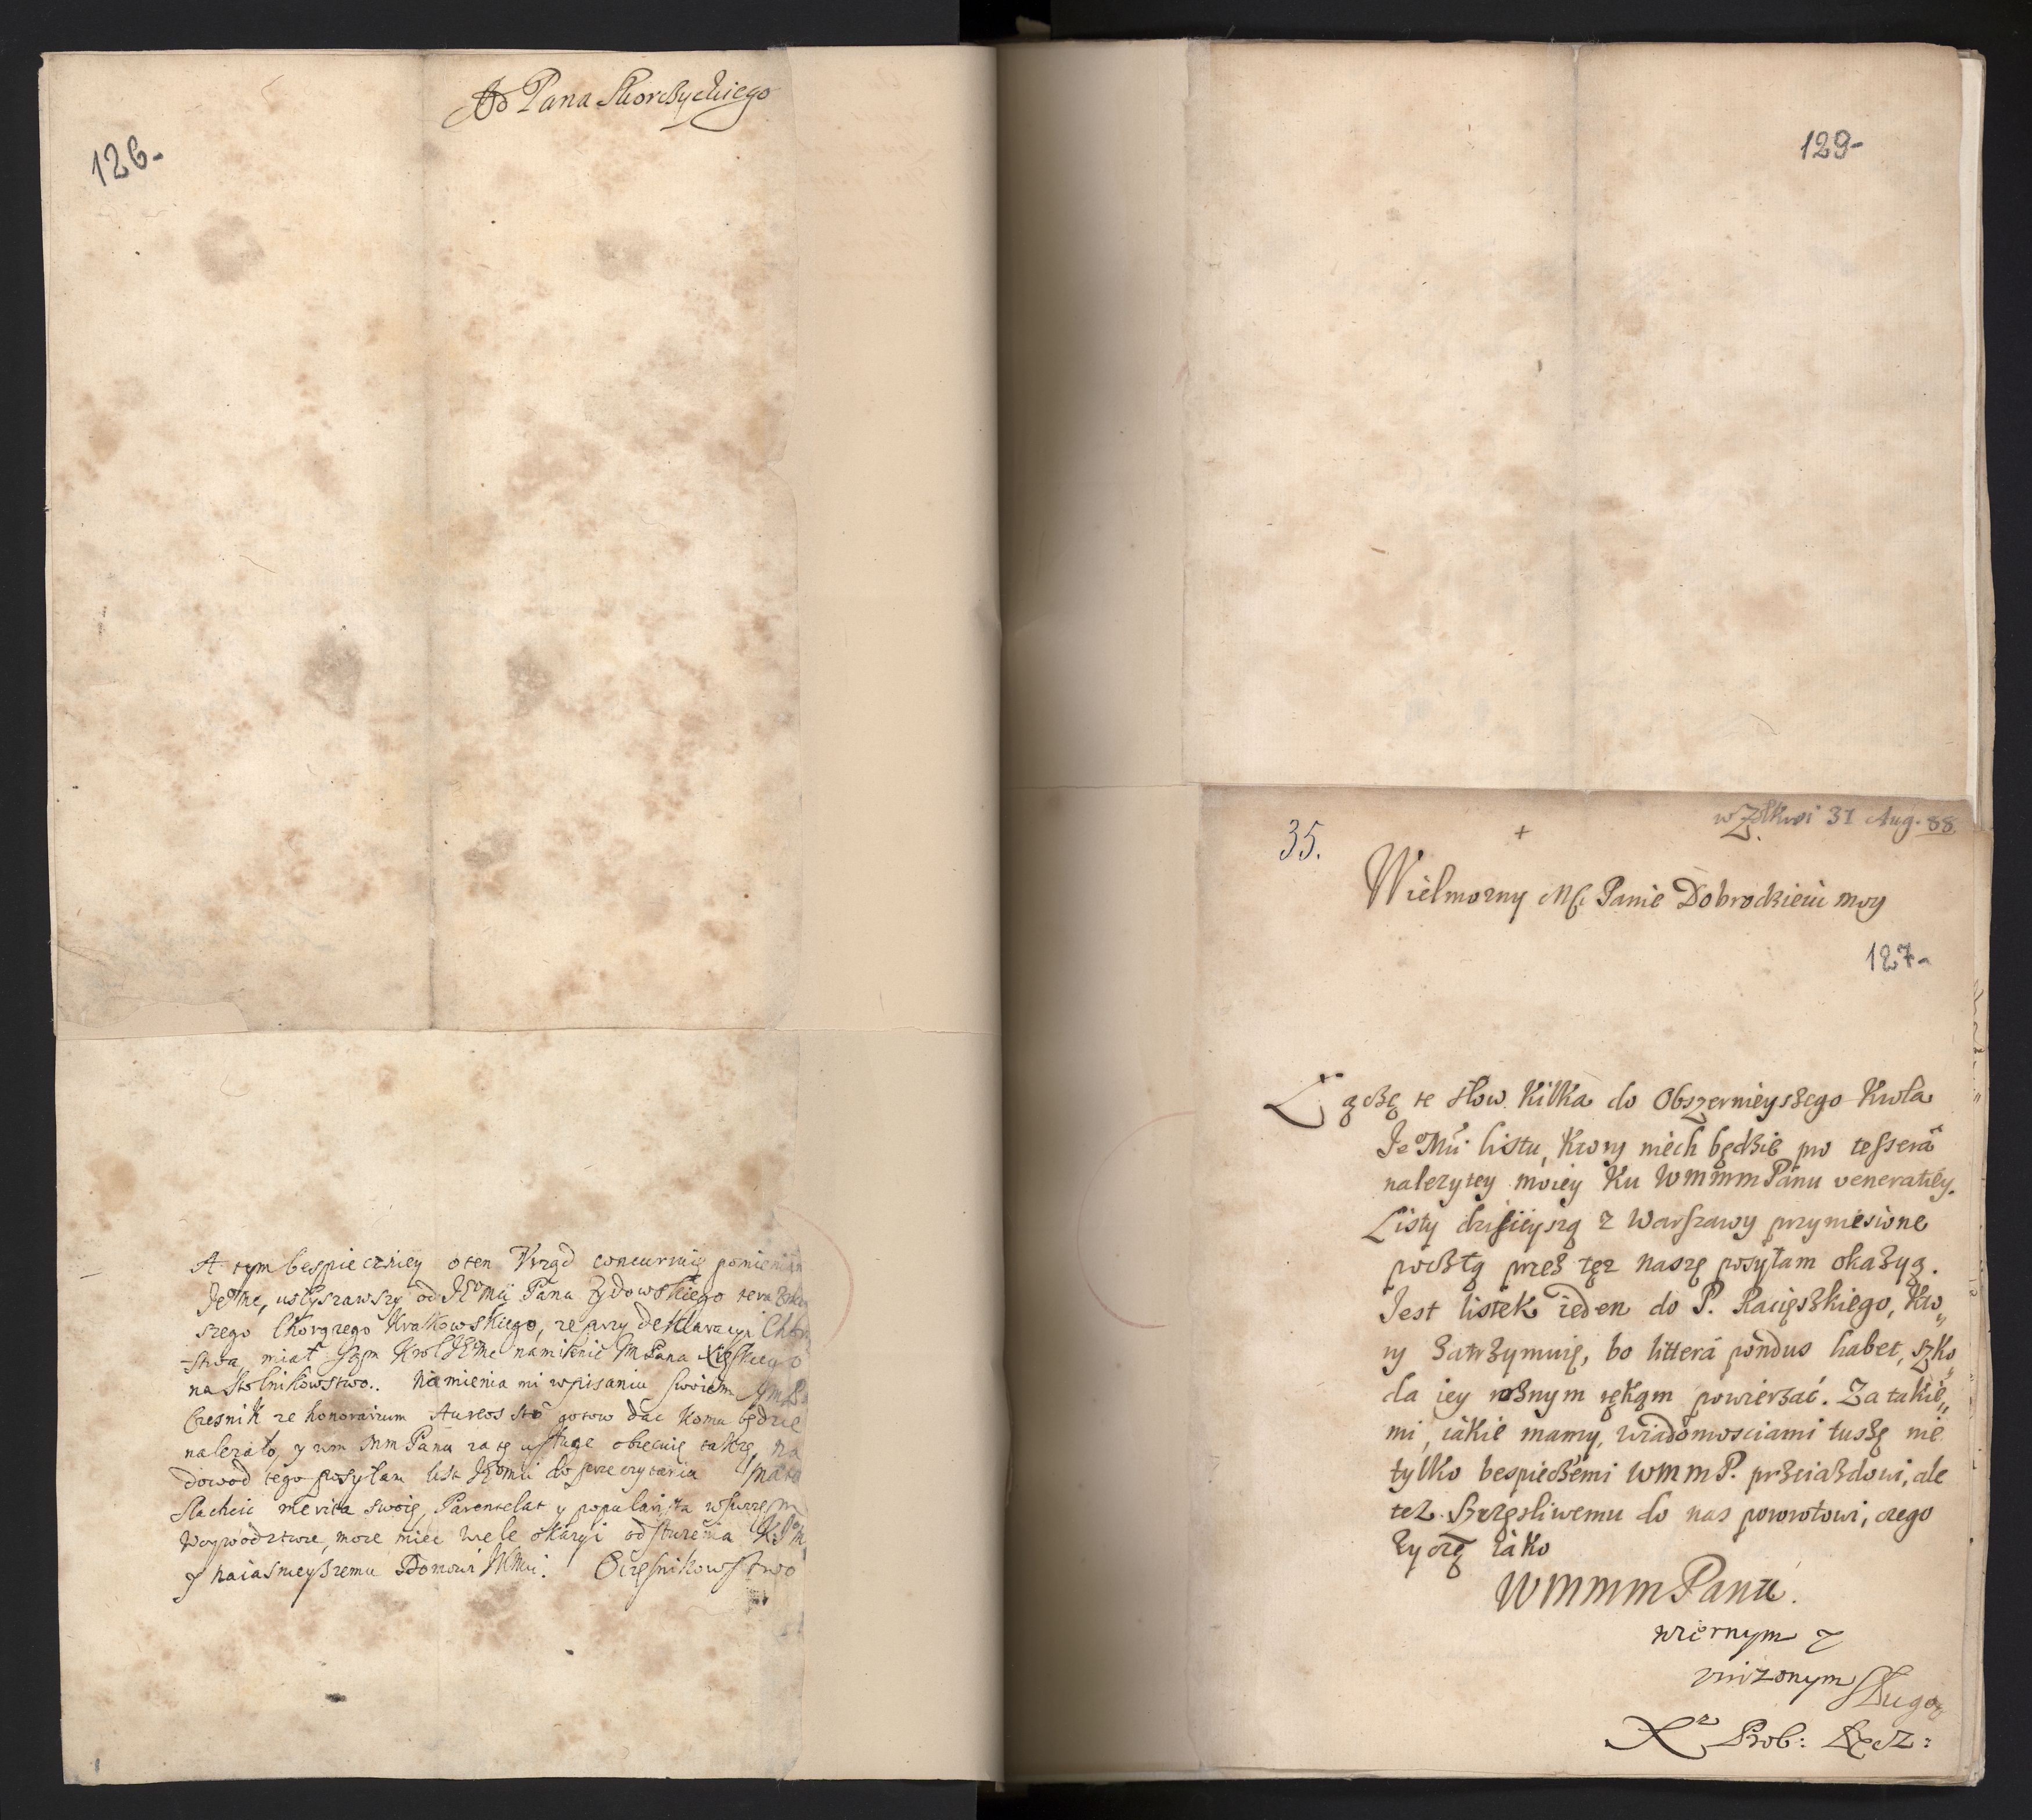 Od Pana Skorchyckiego
126-
A tym bespieczniey o ten Vrząd concurruię
JeoMć, usłyszawszy od JEoMći Pana Żydowskiego
szego Chorązego Krakowskiego, ze przy deklaracyi
miał sąm Krol JEMć namienić JMPana
na Stolnikowstwo. Namienia mi w pisaniu swoiem
Czesnik ze honorarium Aureos sto gotow dać komu będzie
nalezało, y wm MmPanu za tę usługę obiecuię także, na
dowod tego posyłam list JEomći do przeczytania
Slachcic merita swoie, Parentelas y
Woywodztwie, moze mieć wiele okazyi
y naiasnieyszemu Domowi JKMći. O Czesnikowstwo
129-
w Żołkwi 31 Aug. 88
35.
+
Wielmozny Mći Panie Dobrodzieiu moy
127-
Łączę te słow kilka do Obszernieyszego Krola
JeoMći listu, ktory niech będzie pro tesserâ
nalezytey moiey ku WMMMPanu veneratiey.
Listy dzisieyszą z Warszawy przyniesione
pocztą przez tęz naszę posyłam okazyą.
Jest listek ieden do P. Raciąskiego, kto„
ry zatrzymuię, bo litterá pondus habet, szko„
da iey roznym rękąm powierzać. Za takie„
mi, iakie mamy, wiadomosciami tuszę nie
tylko bespiecznemi WMMP. przeiazdowi, ale
tez szczęsliwemu do nas powrotowi, czego
zyczę iáko
WMMMPanu.
wiernym y
vnizonym Sługą
X Prob: